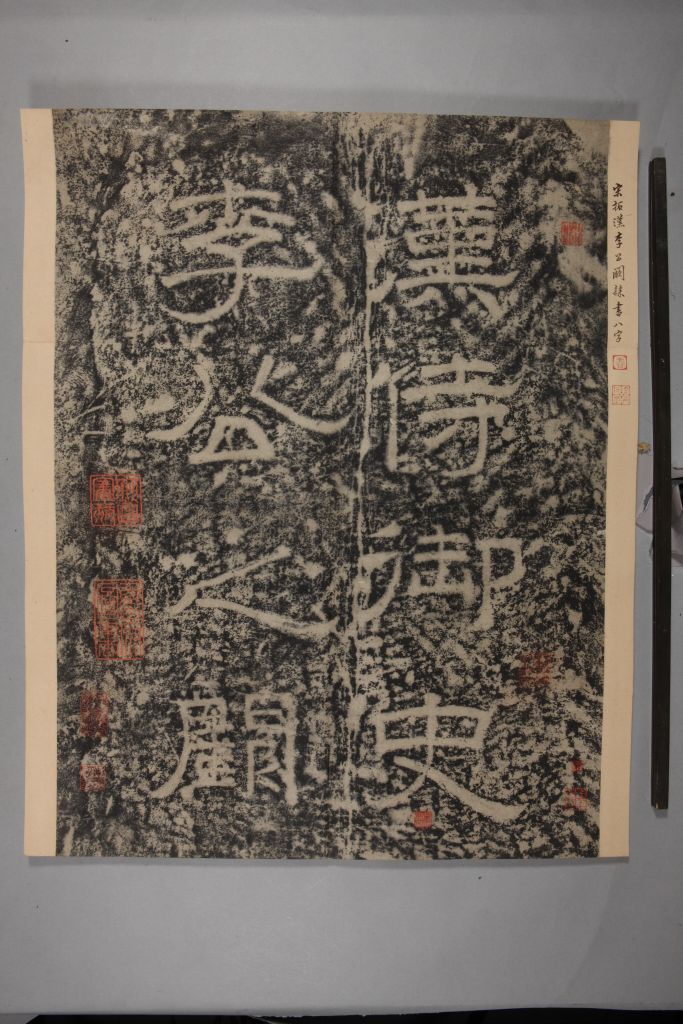 宋拓漢李公闕隸書八字
漢侍御史
李公之闕